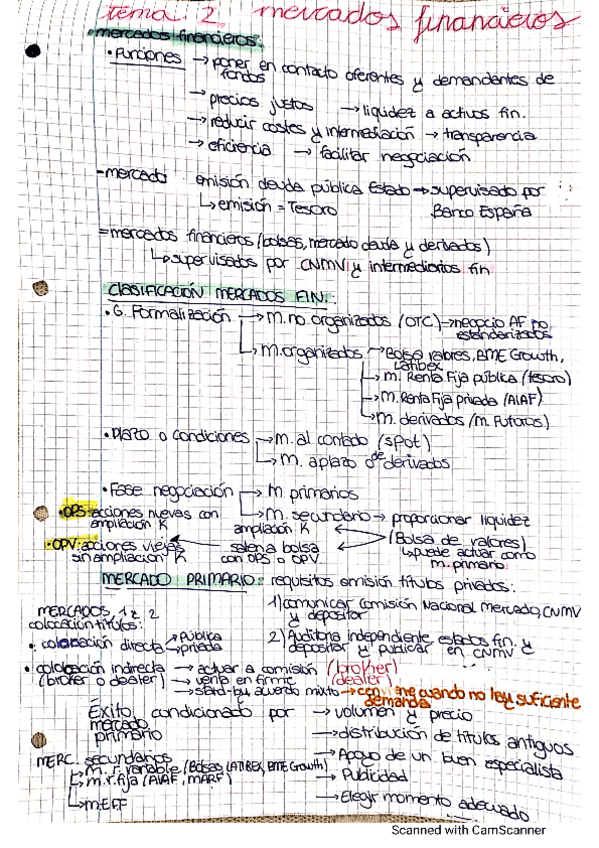 tema: 2 mercados financieros
• mercados financieros:
• Funciones → poner en contacto oferentes y demandantes de fondos
→ precios justos → liquidez a activos fin.
→ reducir costes y intermediación → transparencia
→ eficiencia → facilitar negociación
- mercado emisión deuda pública Estado → supervisado por Banco España
↳ emisión = Tesoro
= mercados financieros (bolsas, mercado deuda y derivados)
↳ supervisados por CNMV y intermediarios fin
CLASIFICACIÓN MERCADOS FIN.:
• G. Formalización → M. no organizados (OTC) → negocio AF no estandarizados
↳ M. organizados → Bolsa valores, BME Growth, Latibex
↳ M. Renta Fija pública (tesoro)
↳ M. Renta Fija privada (AIAF)
↳ M. derivados (M. Futuros)
• Plazo o condiciones → M. al contado (spot)
↳ M. a plazo o de derivados
• Fase negociación → M primarios
↳ M. secundario → proporcionar liquidez
(Bolsa de valores)
↳ puede actuar como m. primario
• OPS: acciones nuevas con ampliación K
ampliación K
• OPV: acciones viejas sin ampliación K
salen a bolsa con OPS o OPV
MERCADO PRIMARIO: requisitos emisión títulos privados:
1) comunicar Comisión Nacional Mercado, CNMV y depositar
2) Auditoria independiente estados fin. y depositar y publicar en CNMV
MERCADOS 1 y 2
colocación títulos:
• colocación directa → Pública
→ privada
• colocación indirecta (broker o dealer) → actuar a comisión (broker)
→ venta en firme (dealer)
→ stand-by, acuerdo mixto → conviene cuando no hay suficiente demanda
Éxito condicionado por mercado primario → volumen y precio
→ distribución de títulos antiguos
→ Apoyo de un buen especialista
→ Publicidad
→ Elegir momento adecuado
MERC. secundarios
↳ m. r. variable (Bolsas, LATIBEX, BME Growth)
↳ m. r. fija (AIAF, MARF)
↳ m. EFF
Scanned with CamScanner